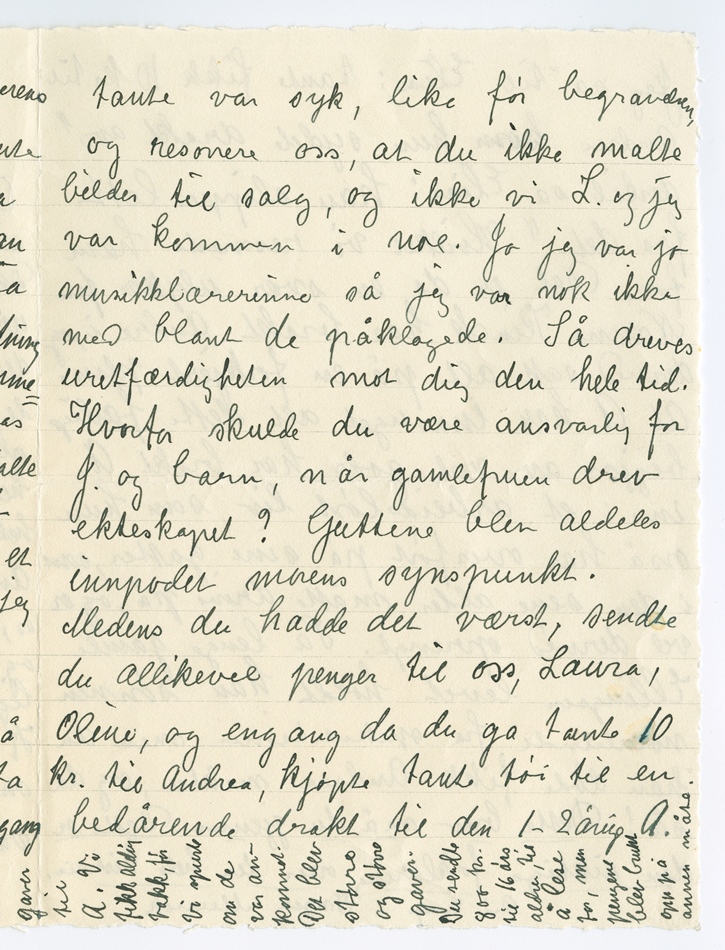 tante var syk, like før begravelsen,
og resonere oss, at du ikke malte
bilder til salg, og ikke vi L. og jeg
var kommen i noe. Ja jeg var jo
musikklærerinne så jeg var nok ikke
med blant de påklagede. Så dreves
uretfærdigheten mot dig den hele tid.
Hvorfor skulde du være ansvarlig for
J. og barn, når gamlefruen drev
ekteskapet? Guttene blev aldeles
innpodet morens synspunkt.
Medens du hadde det værst, sendte
du allikevel penger til oss, Laura,
Oline, og engang da du ga tante 10
kr. til Andrea, kjøpte tante tøi til en
bedårende drakt til den 1-2 årig A.
gaver
til
A. Vi
fikk aldrig
takk, før
vi spurte
om de
var an-
kommet.
Det blev
større
og større
gaver.
Du sendte
800 kr.
til 16 års
alder, til
å lese
for, men
pengene
blev brukt
opp på
annen måte.